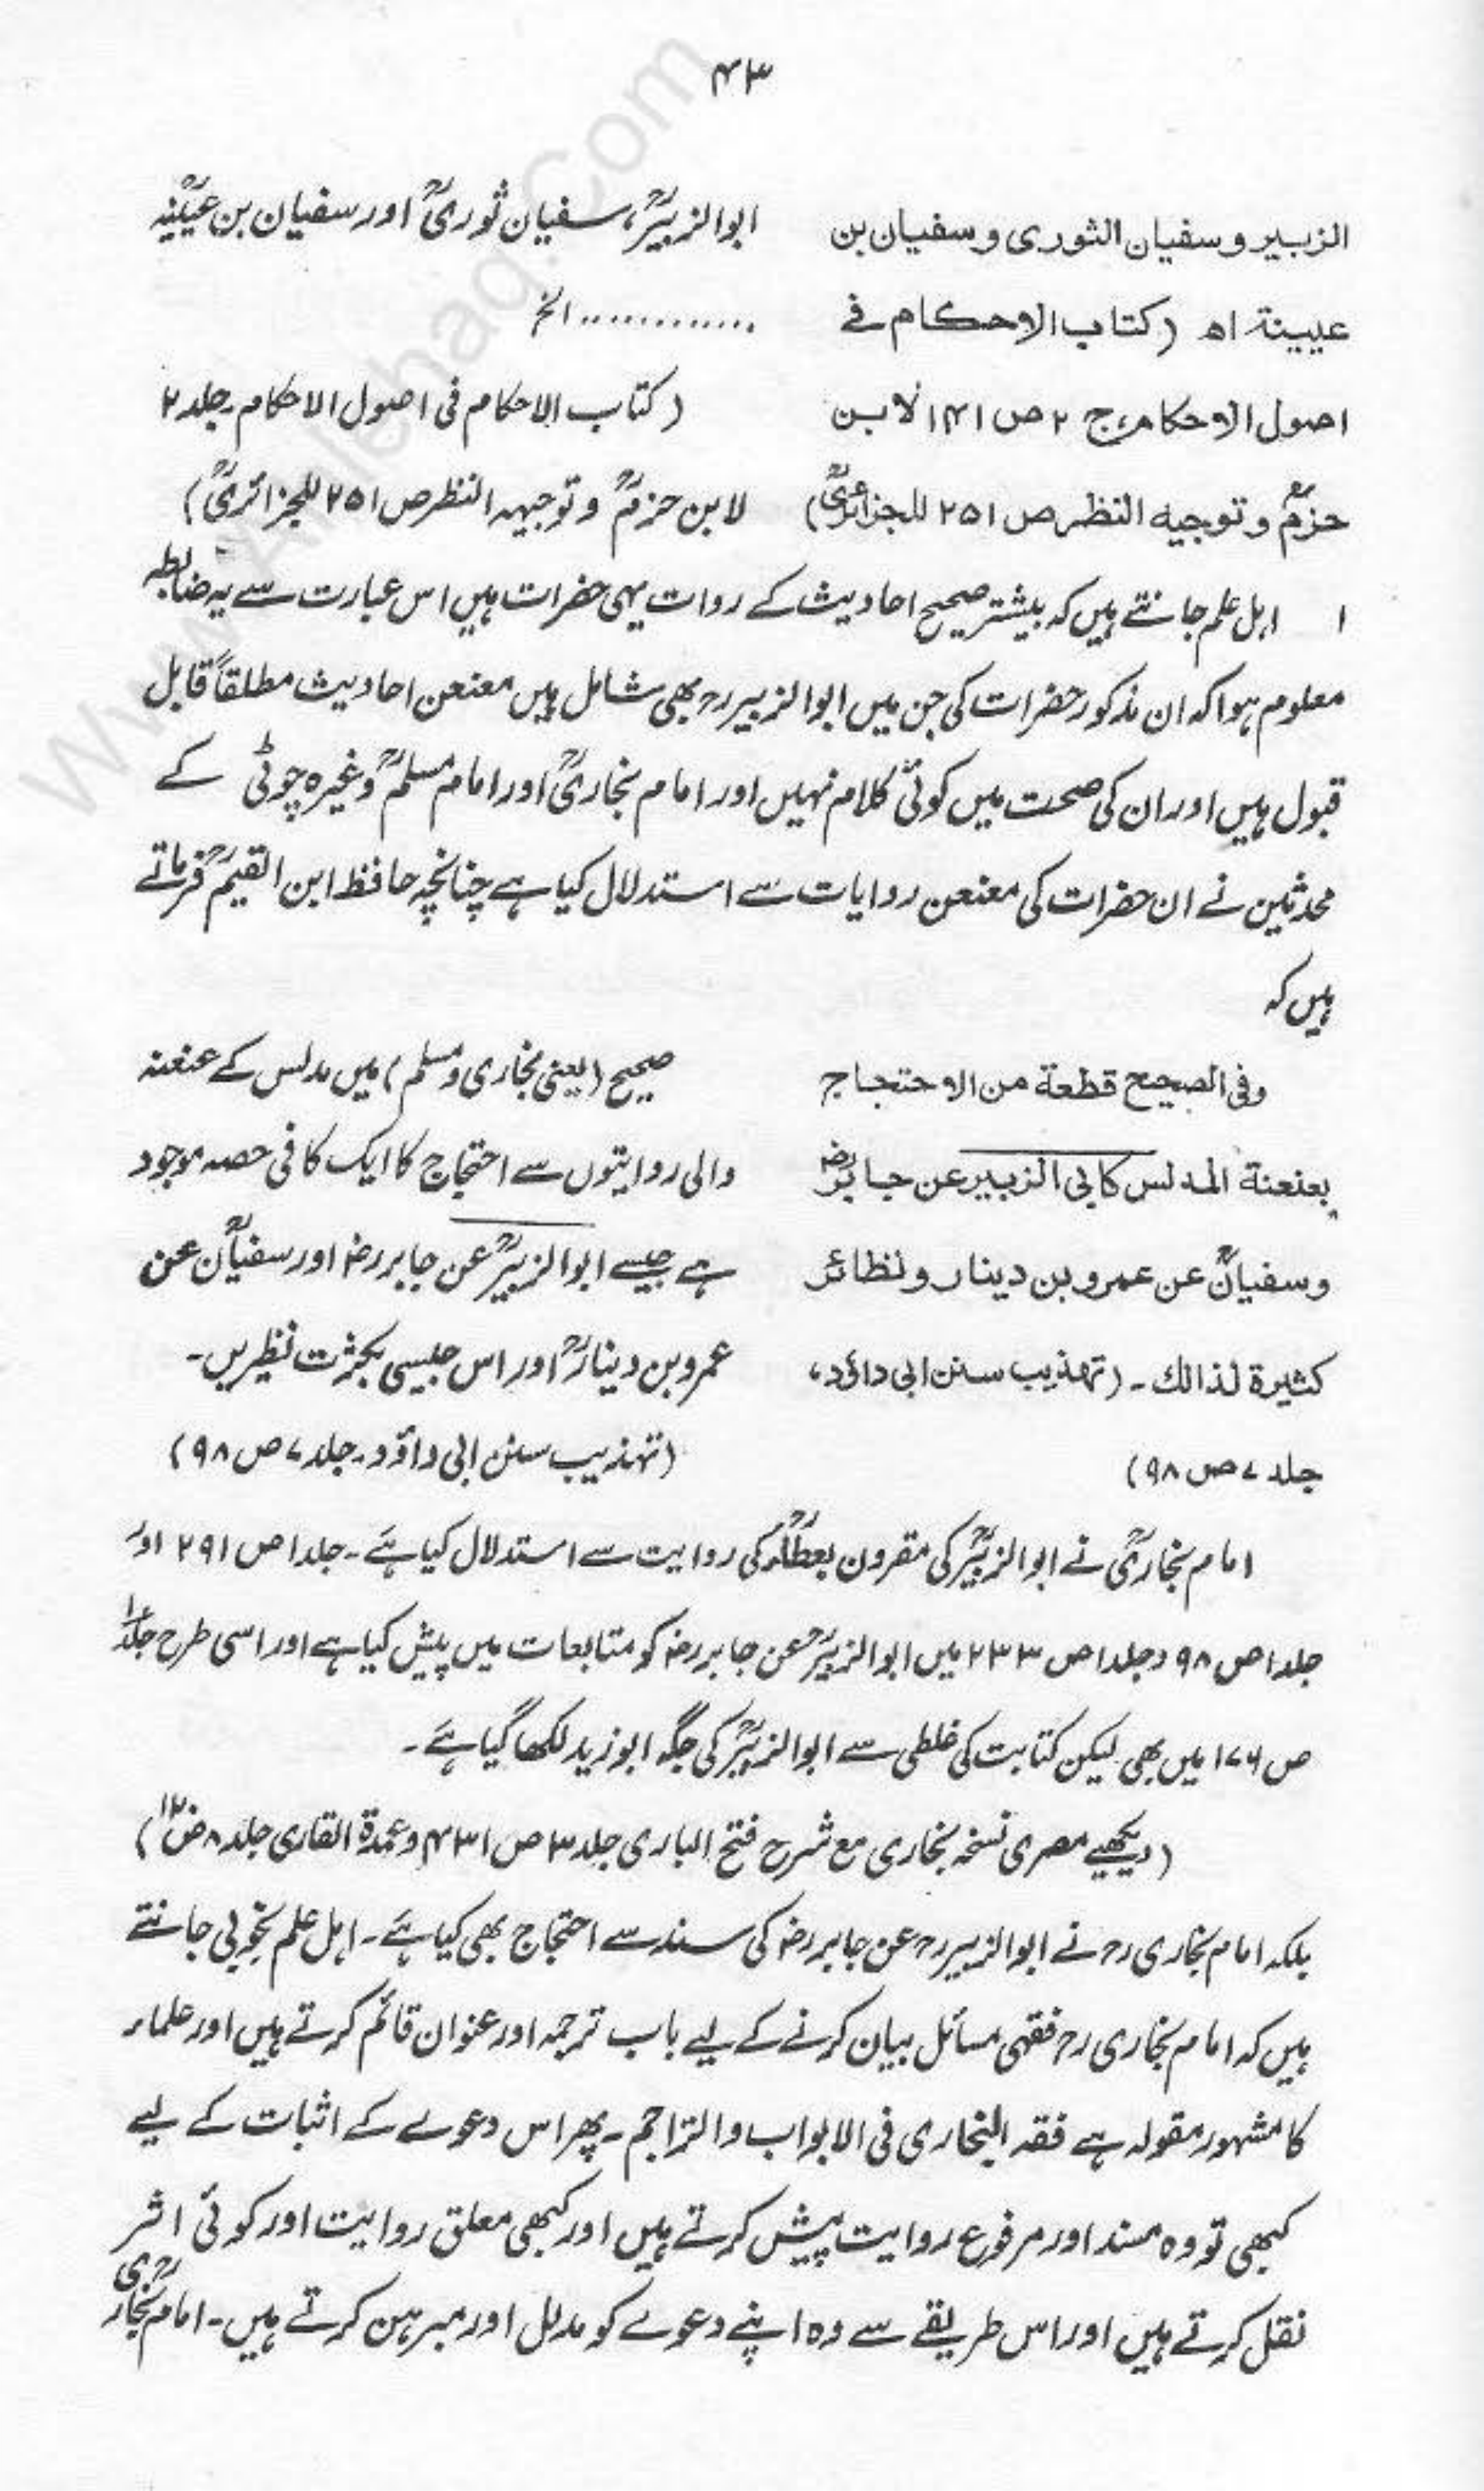 ۴۳
الزبیر و سفیان الثوری و سفیان بن
عیینة اھ (کتاب الاحکام فی
اصول الاحکام ج ۲ ص ۱۴۱ لابن
حزمؒ و توجیه النظر ص ۲۵۱ للجزائریؒ)
ابوالزبیرؒ، سفیان ثوریؒ اور سفیان بن عیینہؒ
............. الخ
(کتاب الاحکام فی اصول الاحکام۔ جلد ۲
لابن حزمؒ و توجیہہ النظر ص ۲۵۱ للجزائریؒ)
۱ اہل علم جانتے ہیں کہ بیشتر صحیح احادیث کے روات یہی حضرات ہیں اس عبارت سے یہ ضابطہ
معلوم ہوا کہ ان مذکور حضرات کی جن میں ابوالزبیررح بھی شامل ہیں معنعن احادیث مطلقاً قابل
قبول ہیں اور ان کی صحت میں کوئی کلام نہیں اور امام بخاریؒ اور امام مسلمؒ وغیرہ چوٹی کے
محدثین نے ان حضرات کی معنعن روایات سے استدلال کیا ہے چنانچہ حافظ ابن القیمؒ فرماتے
ہیں کہ
وفی الصحیح قطعة من الاحتجاج
بعنعنة المدلس کابی الزبیر عن جابرؓ
وسفیانؒ عن عمرو بن دینار ونظائر
کثیرة لذالک ۔ (تهذیب سنن ابی داؤد،
جلد ۷ ص ۹۸)
صحیح (یعنی بخاری و مسلم) میں مدلس کے عنعنہ
والی روایتوں سے احتجاج کا ایک کافی حصہ موجود
ہے جیسے ابوالزبیرؒ عن جابر رض اور سفیانؒ عن
عمرو بن دینارؒ اور اس جیسی بکثرت نظیریں۔
(تہذیب سنن ابی داؤد۔ جلد ۷ ص ۹۸)
امام بخاریؒ نے ابوالزبیرؒ کی مقرون بعطاءؒ کی روایت سے استدلال کیا ہے ۔ جلد ۱ ص ۲۹۱ اور
جلد ۱ ص ۹۸ وجلد ۱ ص ۲۳۳ میں ابوالزبیرؒ عن جابر رض کو متابعات میں پیش کیا ہے اور اسی طرح جلد ۱
ص ۱۷۶ میں بھی لیکن کتابت کی غلطی سے ابوالزبیرؒ کی جگہ ابوزید لکھا گیا ہے ۔
(دیکھیے مصری نسخہ بخاری مع شرح فتح الباری جلد ۳ ص ۴۳۱ و عمدۃ القاری جلد ۸ ص ۱۲)
بلکہ امام بخاری رح نے ابوالزبیر رح عن جابر رض کی سند سے احتجاج بھی کیا ہے ۔ اہل علم بخوبی جانتے
ہیں کہ امام بخاری رح فقہی مسائل بیان کرنے کے لیے باب ترجمہ اور عنوان قائم کرتے ہیں اور علماء
کا مشہور مقولہ ہے فقہ البخاری فی الابواب والتراجم ۔ پھر اس دعوے کے اثبات کے لیے
کبھی تو وہ مسند اور مرفوع روایت پیش کرتے ہیں اور کبھی معلق روایت اور کوئی اثر
نقل کرتے ہیں اور اس طریقے سے وہ اپنے دعوے کو مدلل اور مبرہن کرتے ہیں ۔ امام بخاریؒ